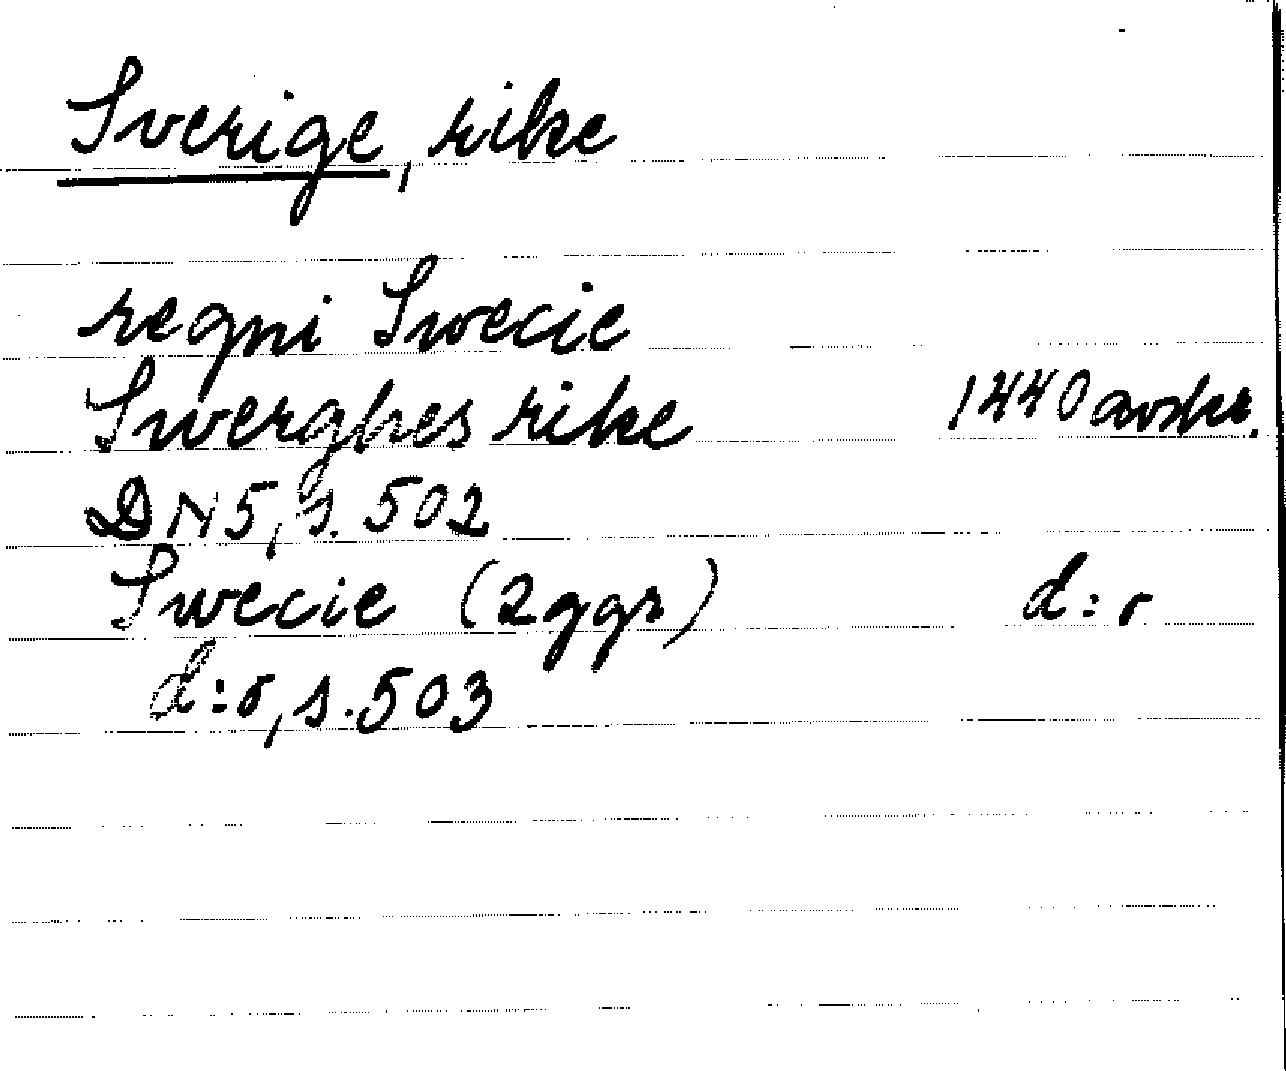 Sverige, rike
regni Swecie
Swerghes rike 1440 avskr.
DN 5, s. 502
Swecie (2 ggr) d:o
d:o, s. 503